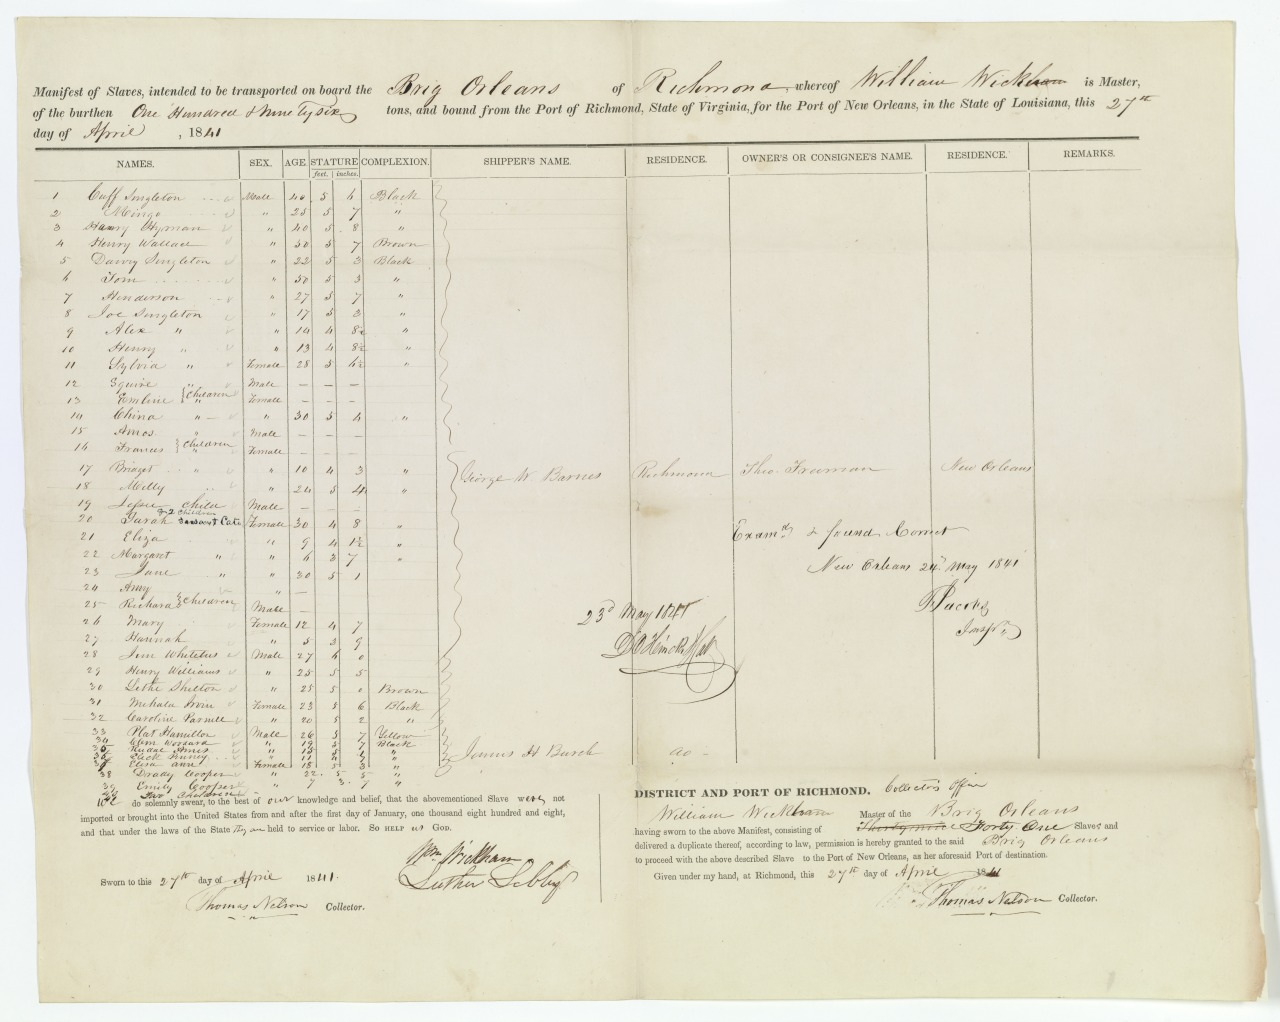 Manifest of Slaves, intended to be transported on board the Brig Orleans of Richmond whereof William Wickham is Master,
of the burthen One Hundred & Ninety six tons, and bound from the Port of Richmond, State of Virginia, for the Port of New Orleans, in the State of Louisiana, this 27th
day of April, 1841
NAMES. SEX. AGE STATURE COMPLEXION. SHIPPER'S NAME. RESIDENCE. OWNER'S OR CONSIGNEE'S NAME. RESIDENCE. REMARKS.
feet. inches.
1 Cuff Singleton Male 40 5 6 Black
2 Mingo " 25 5 7 "
3 Henry Hyman " 40 5 8 "
4 Henry Wallace " 30 5 7 Brown
5 Singleton " 22 5 3 Black
6 Tom " 30 5 3 "
7 Henderson " 27 5 7 "
8 Joe Singleton " 17 5 3 "
9 Alex " " 14 4 8½ "
10 Henry " " 13 4 8½ "
11 Sylvia " Female 28 5 4½ "
12 Squire " Male — — —
13 Emline " } Children Female — — —
14 China " " 30 5 4 "
15 Amos " Male — — —
16 Frances " } Children Female — — —
17 Bridget " " 10 4 3 " George W Barnes Richmond Theo. Freeman New Orleans
18 Milly " 24 5 4 "
19 Child Male — — —
20 Sarah & 2 Children Female 30 4 8 "
21 Eliza " 9 4 1½ "
22 Margaret " " 6 3 7 "
23 Jane " " 30 5 1
24 Amy " —
25 Richard } Children Male —
26 Mary Female 12 4 7
27 Hannah " 5 3 9
28 Jim Male 27 6 0
29 Henry Williams " 25 5 5
30 Shelton " 25 5 0 Brown
31 Female 23 5 6 Black
32 Caroline " 20 5 2 "
33 Plat Hamilton Male 26 5 7 Yellow
34 " 19 5 7 Black
35 Ames " 15 5 "
36 "
37 Eliza Ann Female 18 5 3 " James H Burch do -
38 Cooper " 22 5 5 "
39 Emily Cooper " 7 3 7 "
Two Children
Exam'd & found Correct
New Orleans 24th May 1841
23d May 1841
We do solemnly swear, to the best of our knowledge and belief, that the abovementioned Slave were not
imported or brought into the United States from and after the first day of January, one thousand eight hundred and eight,
and that under the laws of the State They are held to service or labor. So HELP us GOD.
Wm Wickham
Luther Libby
Sworn to this 27th day of April 1841.
Thomas Nelson Collector.
DISTRICT AND PORT OF RICHMOND. Collector's Office
William Wickham Master of the Brig Orleans
having sworn to the above Manifest, consisting of Thirty nine Forty One Slaves and
delivered a duplicate thereof, according to law, permission is hereby granted to the said Brig Orleans
to proceed with the above described Slave to the Port of New Orleans, as her aforesaid Port of destination.
Given under my hand, at Richmond, this 27th day of April 1841
Thomas Nelson Collector.